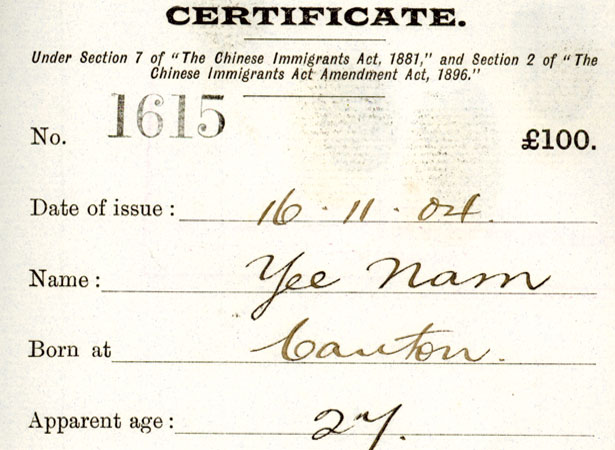 CERTIFICATE.
Under Section 7 of "The Chinese Immigrants Act, 1881," and Section 2 of "The
Chinese Immigrants Act Amendment Act, 1896."
No. 1615 £100.
Date of issue: 16.11.04.
Name: Yee Nam
Born at Canton.
Apparent age: 27.